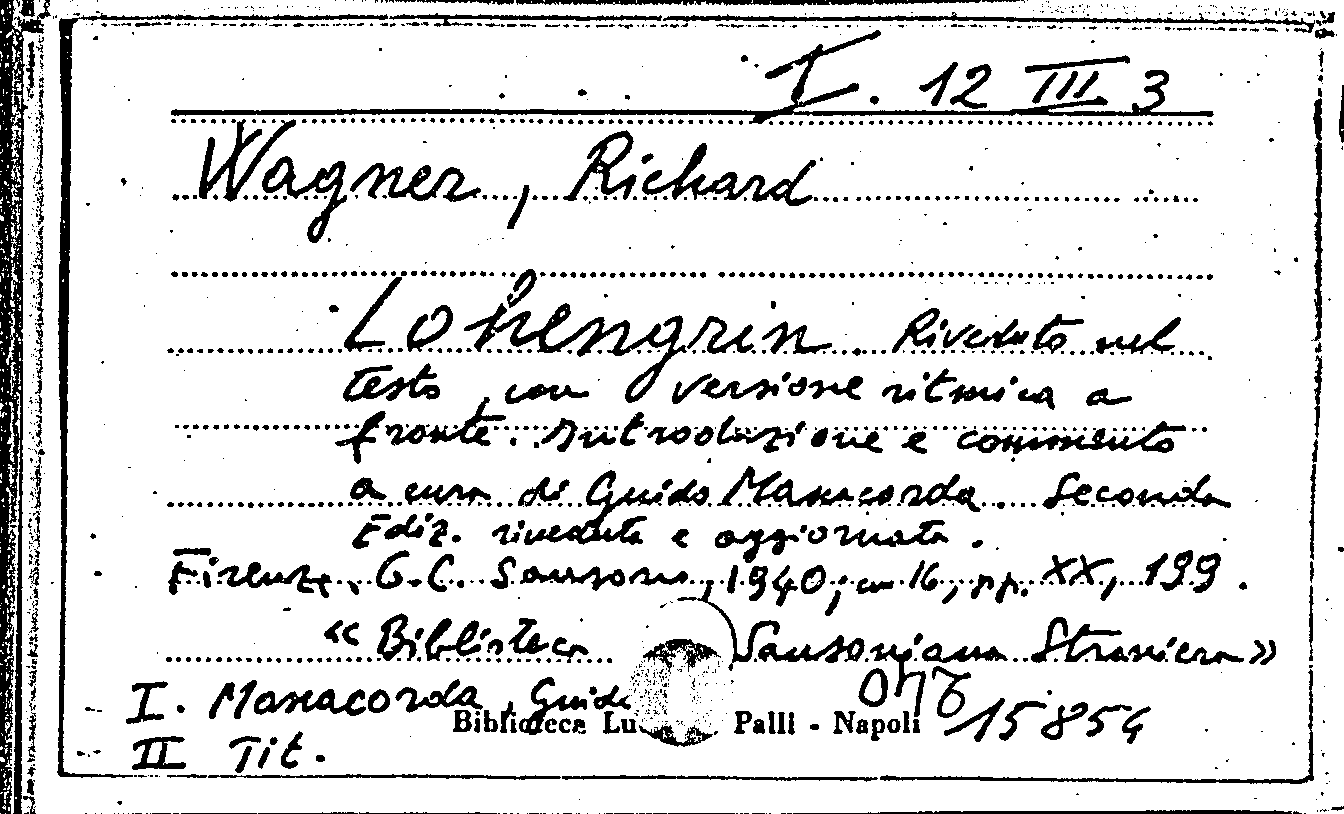 I. 12 III 3
Wagner, Richard
Lohengrin. Riveduto nel
testo, con versione ritmica a
fronte. Introduzione e commento
a cura di Guido Manacorda. Seconda
Ediz. riveduta e aggiornata.
Firenze, G.C. Sansoni, 1940, in 16, pp. XX, 199.
«Biblioteca Sansoniana Straniera»
I. Manacorda, Guido
Biblioteca Lu Palli - Napoli
15854
II Tit.